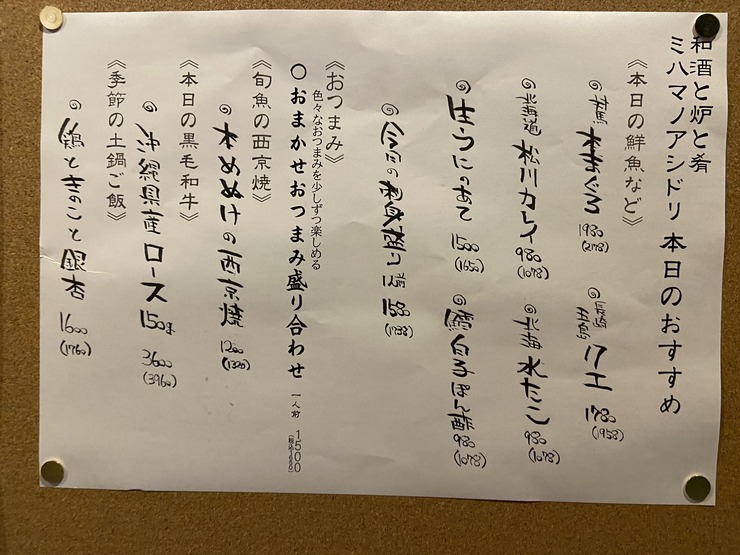 和酒と炉と肴
ミハマノアシドリ 本日のおすすめ
《本日の鮮魚など》
対馬 本まぐろ 1980 (2178)
長崎 五島 クエ 1780 (1958)
北海道 松川カレイ 980 (1078)
北海 水たこ 980 (1078)
生うにのあて 1500 (1650)
鱈白子ぽん酢 980 (1078)
今日の刺身盛り 1人前 1580 (1738)
《おつまみ》
色々なおつまみを少しずつ楽しめる
○おまかせおつまみ盛り合わせ 一人前 1500 (税込1650)
《旬魚の西京焼》
本めぬけの西京焼 1200 (1320)
《本日の黒毛和牛》
沖縄県産ロース 150g 3600 (3960)
《季節の土鍋ご飯》
鶏ときのこと銀杏 1600 (1760)